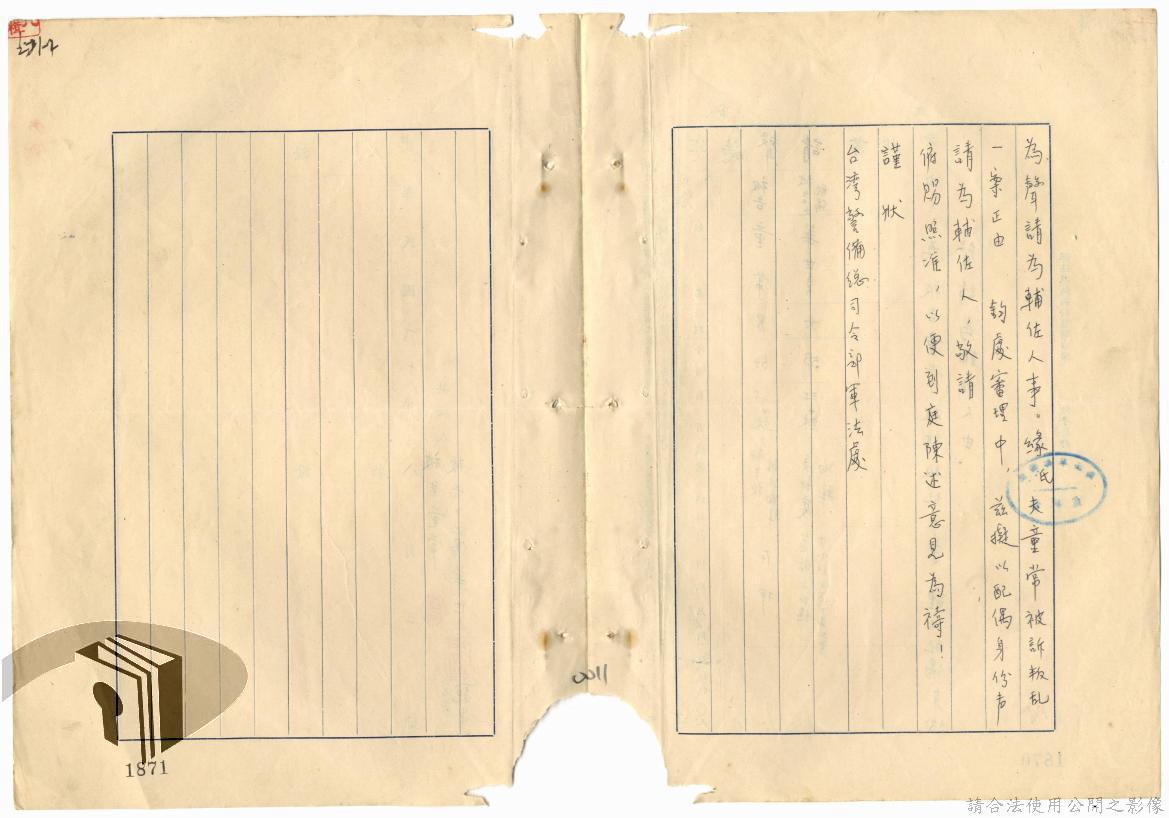 為聲請為輔佐人事。緣氏夫童常被訴叛乱
一案正由 鈞處審理中，茲擬以配偶身份声
請為輔佐人，敬請
俯賜照准，以便到庭陳述意見為禱！
謹狀
台灣警備総司令部軍法處
0011
1871
1870
請合法使用公開之影像